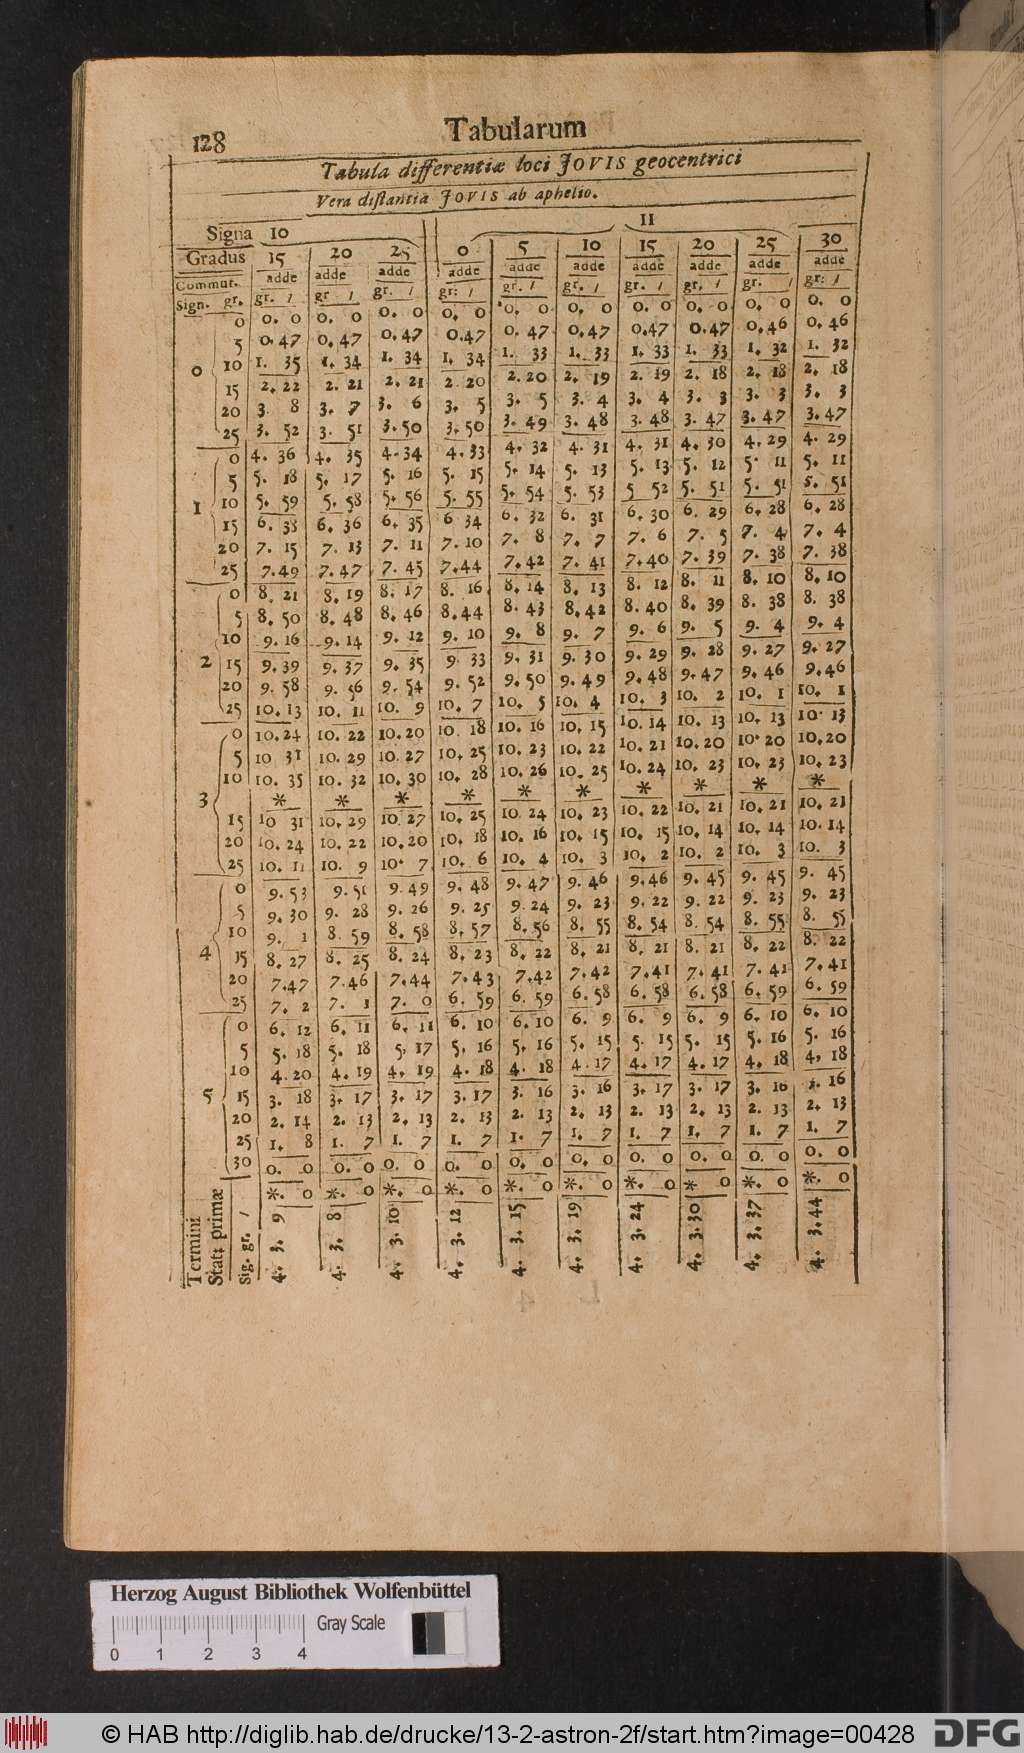 128 Tabularum
Tabula differentiæ loci JOVIS geocentrici
Vera distantia JOVIS ab aphelio.
Signa 10 11
Gradus 15 20 25 0 5 10 15 20 25 30
Commut. adde adde adde adde adde adde adde adde adde adde
Sign. gr. gr. / gr / gr. / gr: / gr. / gr. / gr. / gr. / gr. / gr: /
0 0 0. 0 0. 0 0. 0 0. 0 0. 0 0. 0 0. 0 0. 0 0. 0 0. 0
5 0.47 0.47 0.47 0.47 0.47 0.47 0.47 0.47 0.46 0.46
10 1. 35 1. 34 1. 34 1. 34 1. 33 1. 33 1. 33 1. 33 1. 32 1. 32
15 2. 22 2. 21 2. 21 2 20 2. 20 2. 19 2. 19 2. 18 2. 18 2. 18
20 3. 8 3. 7 3. 6 3. 5 3. 5 3. 4 3. 4 3. 3 3. 3 3. 3
25 3. 52 3. 51 3.50 3.50 3.49 3.48 3.48 3.47 3.47 3.47
1 0 4. 36 4. 35 4.34 4.33 4. 32 4. 31 4. 31 4. 30 4. 29 4. 29
5 5. 18 5. 17 5. 16 5. 15 5. 14 5. 13 5. 13 5. 12 5. 11 5. 11
10 5. 59 5. 58 5. 56 5. 55 5. 54 5. 53 5 52 5. 51 5. 51 5. 51
15 6. 38 6. 36 6. 35 6 34 6. 32 6. 31 6. 30 6. 29 6. 28 6. 28
20 7. 15 7. 13 7. 11 7. 10 7. 8 7. 7 7. 6 7. 5 7. 4 7. 4
25 7.49 7.47 7.45 7.44 7.42 7. 41 7.40 7.39 7. 38 7. 38
2 0 8. 21 8. 19 8. 17 8. 16 8. 14 8. 13 8. 12 8. 11 8. 10 8. 10
5 8. 50 8. 48 8. 46 8.44 8. 43 8.42 8. 40 8. 39 8. 38 8. 38
10 9. 16 9. 14 9. 12 9. 10 9. 8 9. 7 9. 6 9. 5 9. 4 9. 4
15 9. 39 9. 37 9. 35 9. 33 9. 31 9. 30 9. 29 9. 28 9. 27 9. 27
20 9. 58 9. 56 9. 54 9. 52 9. 50 9. 49 9. 48 9. 47 9. 46 9.46
25 10. 13 10. 11 10. 9 10. 7 10. 5 10. 4 10. 3 10. 2 10. 1 10. 1
3 0 10.24 10. 22 10.20 10. 18 10. 16 10. 15 10. 14 10. 13 10. 13 10. 13
5 10 31 10. 29 10. 27 10. 25 10. 23 10. 22 10. 21 10.20 10. 20 10.20
10 10. 35 10. 32 10. 30 10. 28 10. 26 10. 25 10. 24 10. 23 10. 23 10. 23
* * * * * * * * * *
15 10 31 10. 29 10. 27 10. 25 10. 24 10. 23 10. 22 10. 21 10. 21 10. 21
20 10. 24 10. 22 10.20 10. 18 10. 16 10. 15 10. 15 10. 14 10. 14 10. 14
25 10. 11 10. 9 10. 7 10. 6 10. 4 10. 3 10. 2 10. 2 10. 3 10. 3
4 0 9. 53 9. 51 9. 49 9. 48 9. 47 9. 46 9.46 9. 45 9. 45 9. 45
5 9. 30 9. 28 9. 26 9. 25 9. 24 9. 23 9. 22 9. 22 9. 23 9. 23
10 9. 1 8. 59 8. 58 8. 57 8. 56 8. 55 8. 54 8. 54 8. 55 8. 55
15 8. 27 8. 25 8. 24 8. 23 8. 22 8. 21 8. 21 8. 21 8. 22 8. 22
20 7.47 7.46 7.44 7.43 7.42 7.42 7.41 7.41 7.41 7.41
25 7. 2 7. 1 7. 0 6. 59 6. 59 6. 58 6. 58 6. 58 6. 59 6. 59
5 0 6. 12 6. 11 6. 11 6. 10 6. 10 6. 9 6. 9 6. 9 6. 10 6. 10
5 5. 18 5. 18 5. 17 5. 16 5. 16 5. 15 5. 15 5. 15 5. 16 5. 16
10 4. 20 4. 19 4. 19 4. 18 4. 18 4. 17 4. 17 4. 17 4. 18 4. 18
15 3. 18 3. 17 3. 17 3. 17 3. 16 3. 16 3. 17 3. 17 3. 16 3. 16
20 2. 14 2. 13 2. 13 2. 13 2. 13 2. 13 2. 13 2. 13 2. 13 2. 13
25 1. 8 1. 7 1. 7 1. 7 1. 7 1. 7 1. 7 1. 7 1. 7 1. 7
30 0. 0 0. 0 0. 0 0. 0 0. 0 0. 0 0. 0 0. 0 0. 0 0. 0
*. 0 *. 0 *. 0 *. 0 *. 0 *. 0 *. 0 * 0 *. 0 *. 0
Termini
Stat: primæ
Sig. gr. / 4. 3. 9 4. 3. 8 4. 3. 10 4. 3. 12 4. 3. 15 4. 3. 19 4. 3. 24 4. 3. 30 4. 3. 37 4. 3. 44
Herzog August Bibliothek Wolfenbüttel
Gray Scale
0 1 2 3 4
© HAB http://diglib.hab.de/drucke/13-2-astron-2f/start.htm?image=00428 DFG